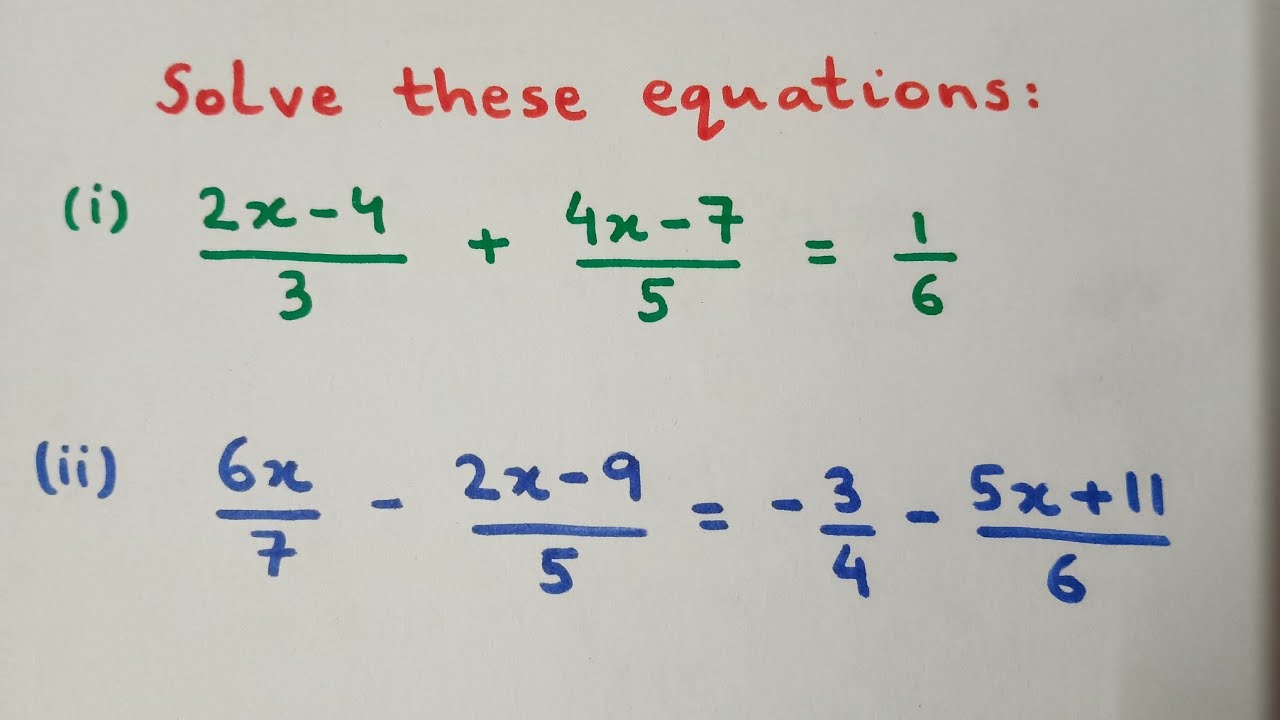 Solve these equations:
(i) (2x-4)/3 + (4x-7)/5 = 1/6
(ii) 6x/7 - (2x-9)/5 = -3/4 - (5x+11)/6